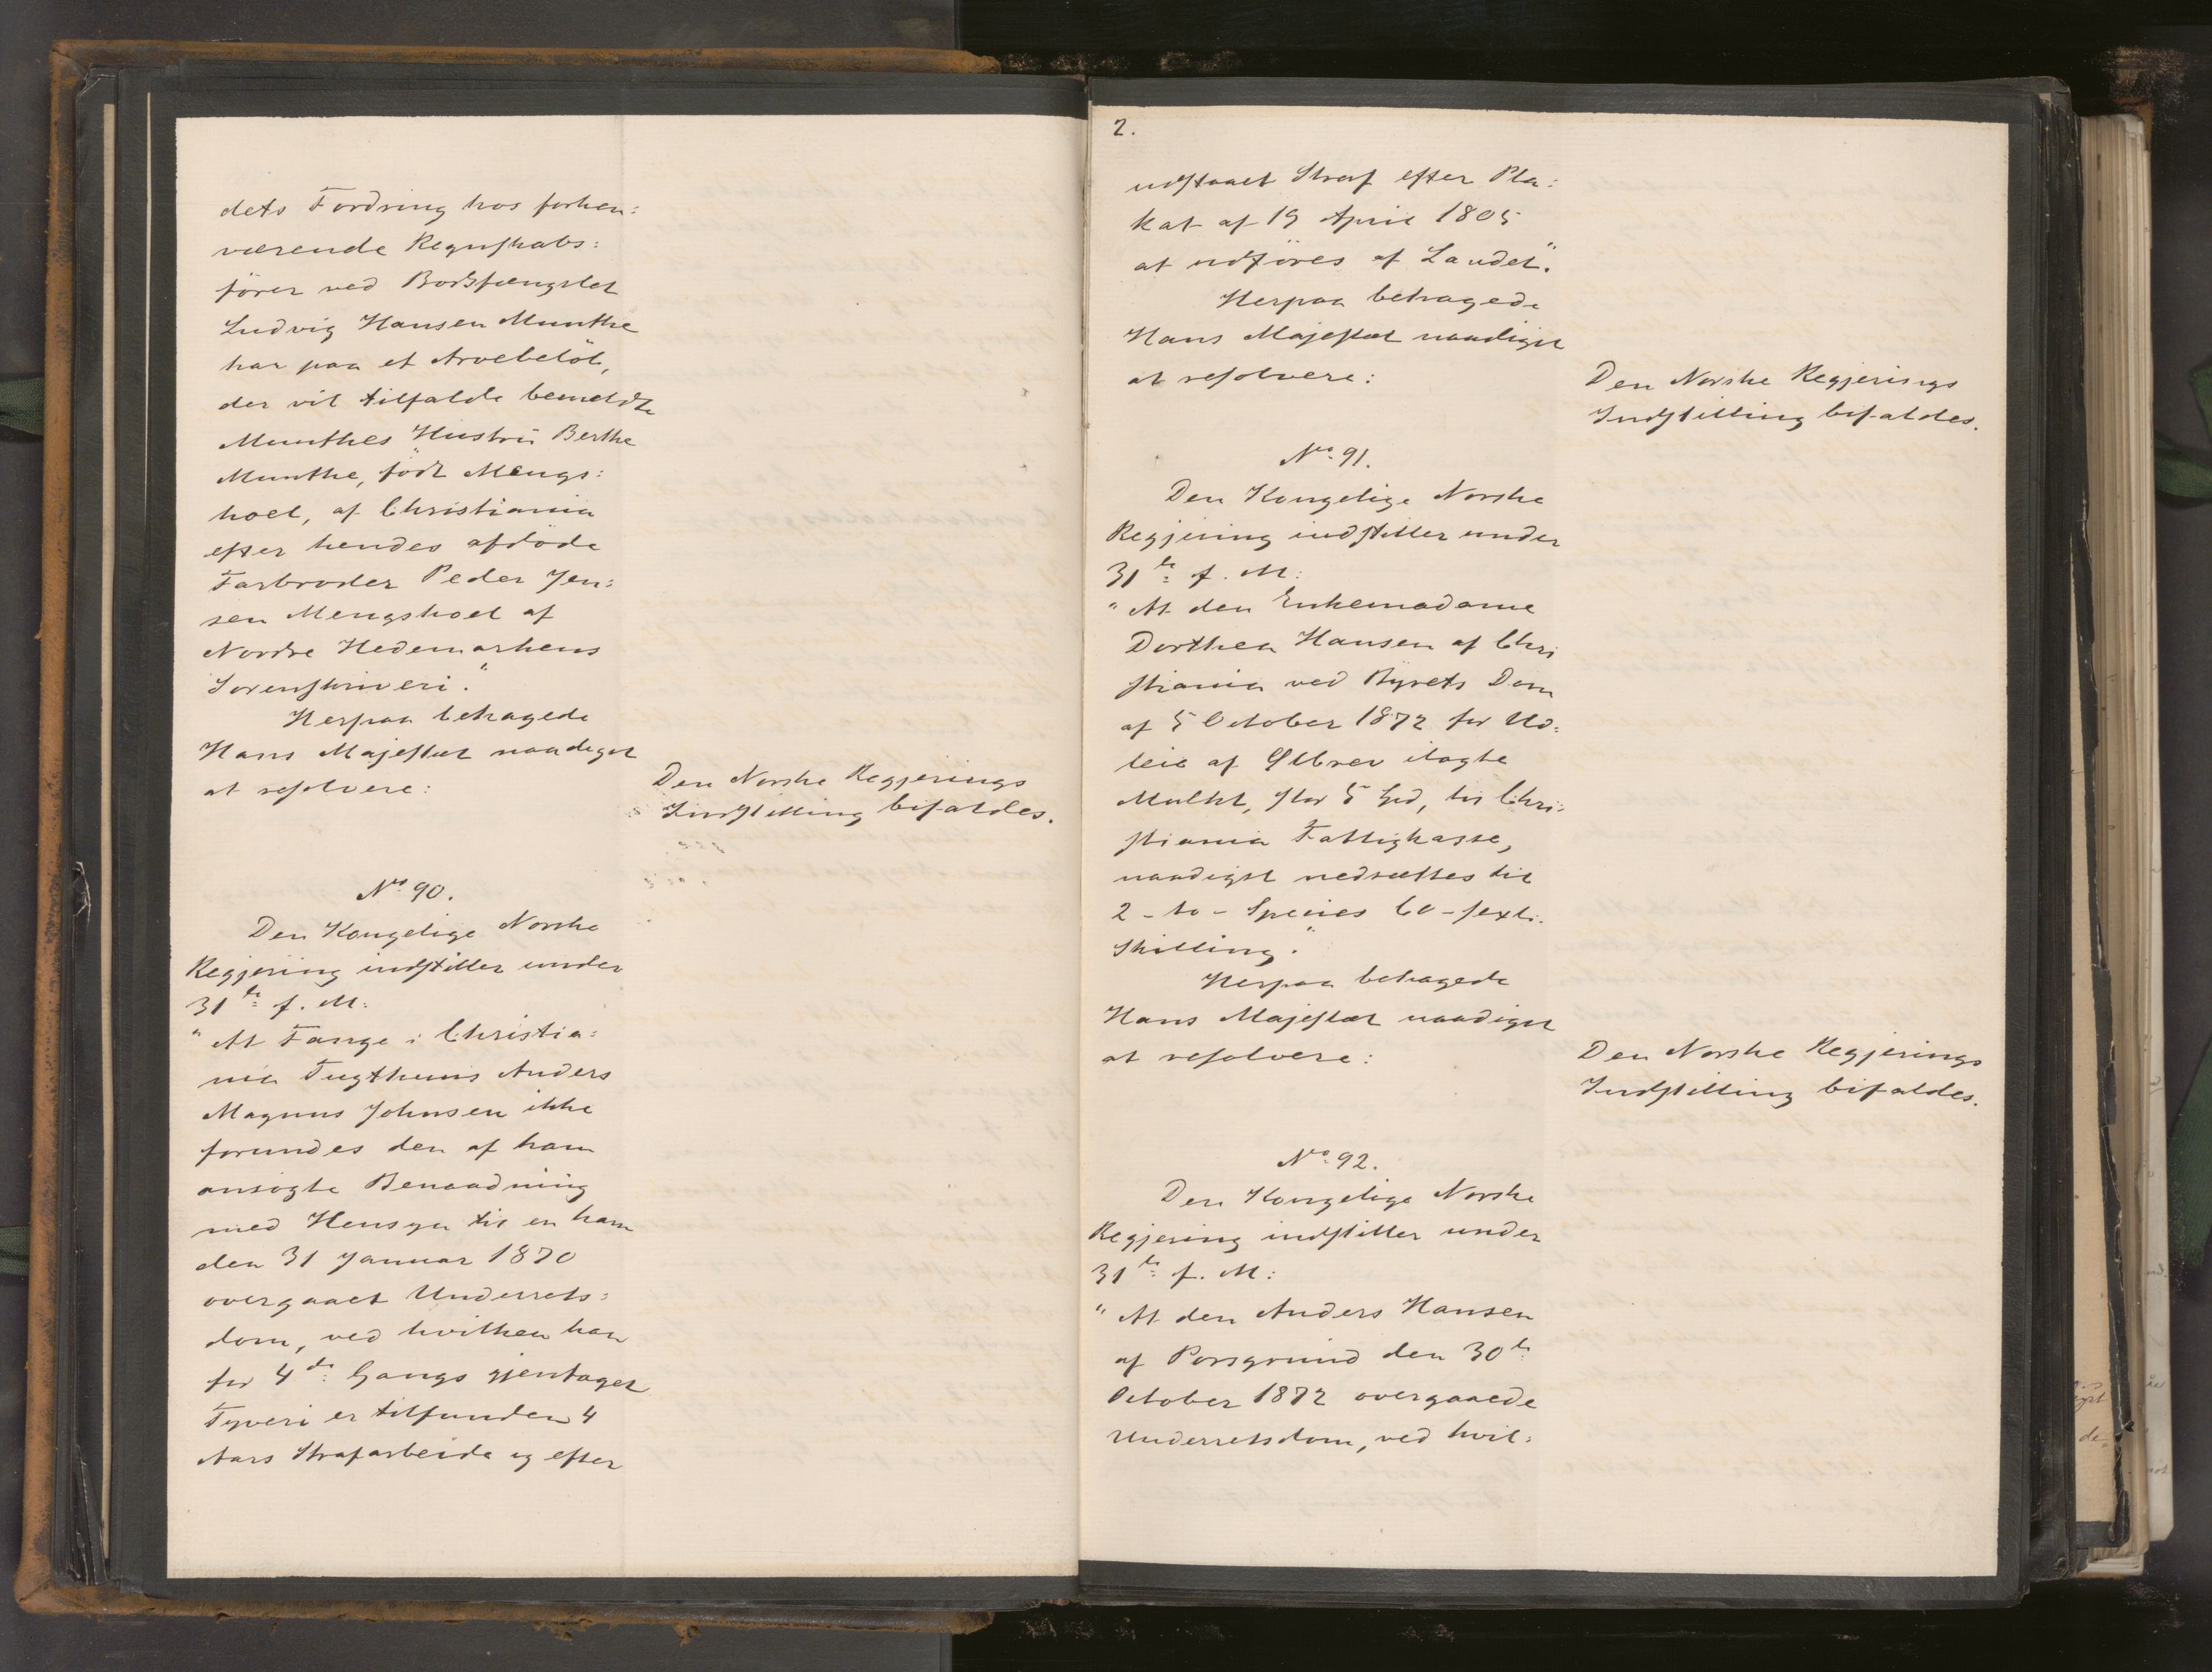 dets Fordring hos forhen:
værende Regnskabs:
förer ved Bodsfængslet
Ludvig Hansen Munthe
har paa et Arvebelöb,
der vil tilfalde bemeldte
Munthes Hustru Berthe
Munthe, født Mengs:
hoel, af Christiania
efter hendes afdöde
Farbroder Peder Jen:
sen Mengshoel af
Nordre Hedemarkens
Sorenskriveri."
Herpaa behagede
Hans Majestæt naadigst
at resolvere:
Den Norske Regjerings
Indstilling bifaldes.
No. 90.
Den Kongelige Norske
Regjering indstiller under
31te f. M:
"At Fange i Christia:
nia Tugthuus Anders
Magnus Johnsen ikke
forundes den af ham
ansögte Benaadning
med Hensyn til en ham
den 31 Januar 1870
overgaaet Underrets:
dom, ved hvilken han
for 4de Gangs gjentaget
Tyveri er tilfunden 4
Aars Strafarbeide og efter
2.
udstaaet Straf efter Pla:
kat af 19 April 1805
at udföres af Landet".
Herpaa behagede
Hans Majestæt naadigst
at resolvere:
Den Norske Regjerings
Indstilling bifaldes.
No. 91.
Den Kongelige Norske
Regjering indstiller under
31te f. M:
"At den Enkemadame
Dorthea Hansen af Chri
stiania ved Byrets Dom
af 5 October 1872 for Ud:
leie af ilagte
Mulkt, stor 5 Spd, til Chri:
stiania Fattigkasse,
naadigst nedsættes til
2 - to - Species 60 - sexti-
Skilling."
Herpaa behagede
Hans Majestæt naadigst
at resolvere:
Den Norske Regjerings
Indstilling bifaldes.
No. 92.
Den Kongelige Norske
Regjering indstiller under
31te f. M:
"At den Anders Hansen
af Porsgrund den 30te
October 1872 overgaaede
Underretsdom, ved hvil: